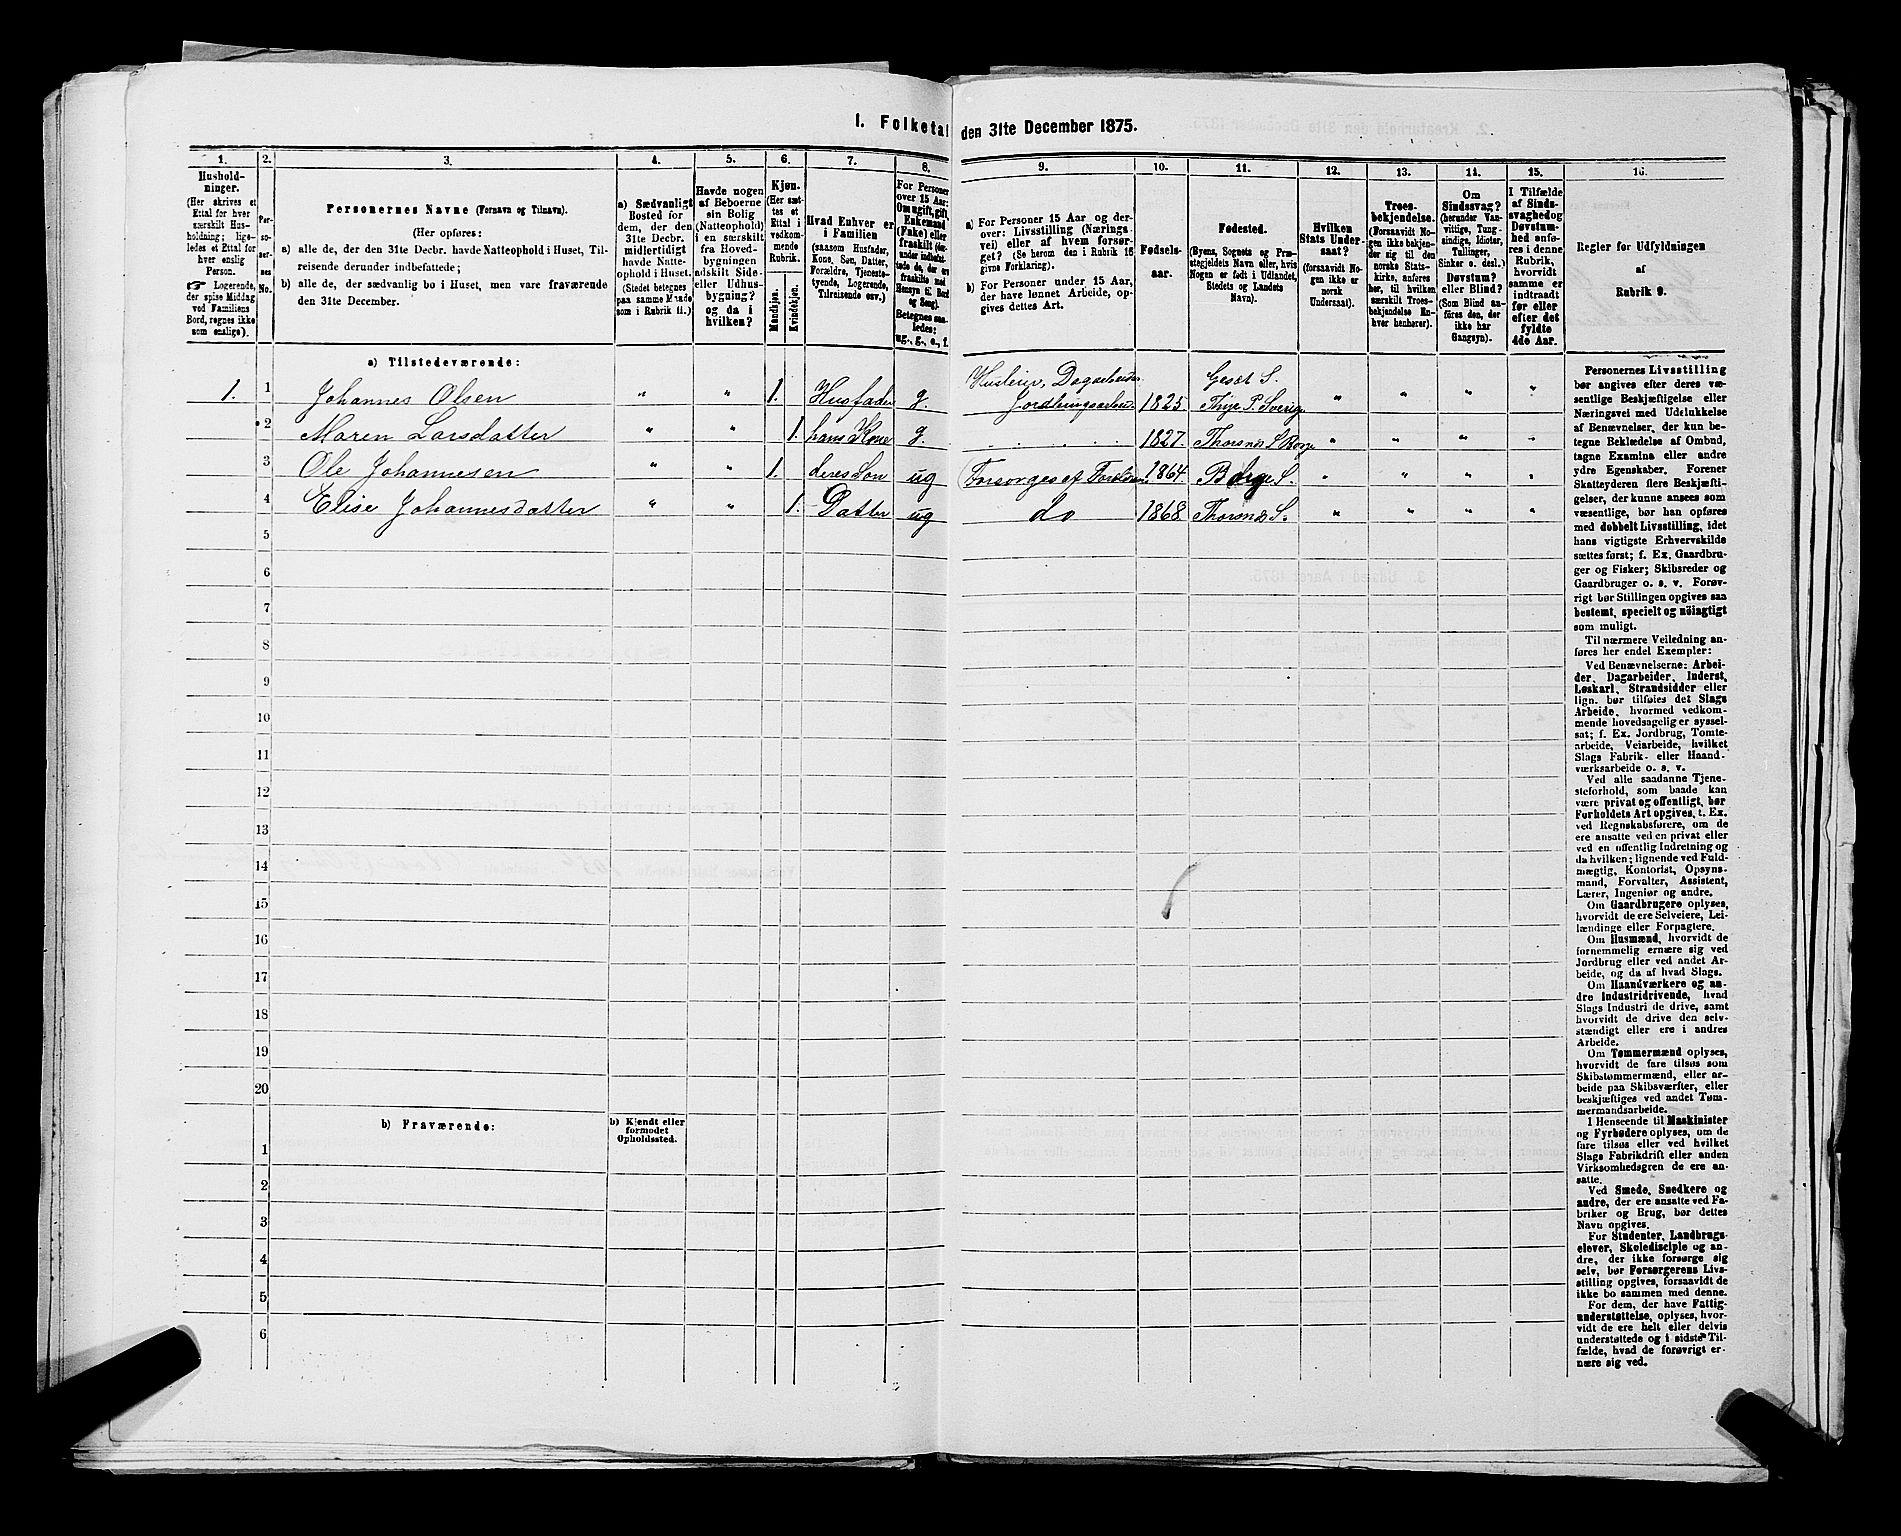 I. Folketal den 31te December 1875.
1. 2. 3. 4. 5. 6. 7. 8. 9. 10. 11. 12. 13. 14. 15. 16.
Hushold-
ninger.
(Her skrives et
Ettal for hver
særskilt Hus-
holdning; lige-
ledes et Ettal for
hver enslig
Person.
☞ Logerende,
der spise Middag
ved Familiens
Bord, regnes ikke
som enslige).
Per-
so-
ner-
nes
No.
Personernes Navne (Fornavn og Tilnavn).
(Her opføres:
a) alle de, der den 31te Decbr. havde Natteophold i Huset, Til-
reisende derunder indbefattede;
b) alle de, der sædvanlig bo i Huset, men vare fraværende
den 31te December.
a) Sædvanligt
Bosted for
dem, der den
31te Decbr.
midlertidigt
havde Natte-
ophold i Huset.
(Stedet betegnes
paa samme Maade
som i Rubrik 11.)
Havde nogen
af Beboerne
sin Bolig
(Natteophold)
i en særskilt
fra Hoved-
bygningen
adskilt Side-
eller Udhus-
bygning?
og da i
hvilken?
Kjøn.
(Her sæt-
tes et
Ettal i
vedkom-
mende
Rubrik.
Mandkjøn.
Kvindekjøn.
Hvad Enhver er
i Familien
(saasom Husfader,
Kone, Søn, Datter,
Forældre, Tjeneste-
tyende, Logerende,
Tilreisende osv.)
For Personer
over 15 Aar:
Om ugift, gift,
Enkemand
(Enke) eller
fraskilt (der-
under indbefat-
tede de, der ere
fraskilte med
Hensyn til Bord
og Seng).
Betegnes saa-
ledes:
ug., g., e., f.
a) For Personer 15 Aar og der-
over: Livsstilling (Nærings-
vei) eller af hvem forsør-
get? (Se herom den i Rubrik 16
givne Forklaring).
b) For Personer under 15 Aar,
der have lønnet Arbeide, op-
gives dettes Art.
Fødsels-
aar.
Fødested.
(Byens, Sognets og Præ-
stegjeldets Navn eller, hvis
Nogen er født i Udlandet,
Stedets og Landets
Navn).
Hvilken
Stats Under-
saat?
(forsaavidt No-
gen ikke er
norsk
Undersaat).
Troes-
bekjendelse.
(Forsaavidt No-
gen ikke bekjen-
der sig til den
norske Stats-
kirke, anføres
her, til hvilken
særskilt Troes-
bekjendelse En-
hver henhører).
Om
Sindssvag?
(herunder Van-
vittige, Tung-
sindige, Idioter,
Tullinger,
Sinker o. desl.)
Døvstum?
eller Blind?
(Som Blind an-
føres den, der
ikke har
Gangsyn).
I Tilfælde
af Sinds-
svaghed og
Døvstum-
hed anfø-
res i denne
Rubrik,
hvorvidt
samme er
indtraadt
før eller
efter det
fyldte
4de Aar.
Regler for Udfyldningen
af
Rubrik 9.
a) Tilstedeværende:
1. 1 Johannes Olsen " " 1. Husfader g. 1825 " " " "
2 Maren Larsdatter " " 1. hans Kone g. 1827. Thorsnæs S. Borge " " " "
3 Ole Johannesen " " 1. deres Søn ug Forsørges af Forældrene 1864. Borge S. " " "
4 Elise Johannesdatter " " 1. Datter ug do 1868 Thorsnæs S. " " " "
5
6
7
8
9
10
11
12
13
14
15
16
17
18
19
20
b) Fraværende:
b) Kjendt eller
formodet
Opholdssted.
1
2
3
4
5
6
Personernes Livsstilling
bør angives efter deres væ-
sentlige Beskjæftigelse eller
Næringsvei med Udelukkelse
af Benævnelser, der kun be-
tegne Beklædelse af Ombud,
tagne Examina eller andre
ydre Egenskaber. Forener
Skatteyderen flere Beskjæfti-
gelser, der kunne ansees som
væsentlige, bør han opføres
med dobbelt Livsstilling, idet
hans vigtigste Erhvervskilde
sættes først; f. Ex. Gaardbru-
ger og Fisker; Skibsreder og
Gaardbruger o. s. v. Forøv-
rigt bør Stillingen opgives saa
bestemt, specielt og nöiagtigt
som muligt.
Til nærmere Veiledning an-
føres her endel Exempler:
Ved Benævnelserne: Arbei-
der, Dagarbeider, Inderst,
Løskarl, Strandsidder eller
lign. bør tilføies det Slags
Arbeide, hvormed vedkom-
mende hovedsagelig er syssel-
sat; f. Ex. Jordbrug, Tomte-
arbeide, Veiarbeide, hvilket
Slags Fabrik- eller Haand-
værksarbeide o. s. v.
Ved alle saadanne Tjene-
steforhold, som baade kan
være privat og offentligt, bør
Forholdets Art opgives, t. Ex.
ved Regnskabsførere, om de
ere ansatte ved en privat eller
ved en offentlig Indretning og
da hvilken; lignende ved Fuld-
mægtig, Kontorist, Opsyns-
mand, Forvalter, Assistent,
Lærer, Ingeniør og andre.
Om Gaardbrugere oplyses,
hvorvidt de ere Selveiere, Lei-
lændinge eller Forpagtere.
Om Husmænd, hvorvidt de
fornemmelig ernære sig ved
Jordbrug eller ved andet Ar-
beide, og da af hvad Slags.
Om Haandværkere og an-
dre Industridrivende, hvad
Slags Industri de drive, samt
hvorvidt de drive den selv-
stændigt eller ere i andres
Arbeide.
Om Tømmermænd oplyses,
hvorvidt de fare tilsøs som
Skibstømmermænd, eller ar-
beide paa Skibsværfter, eller
beskjæftiges ved andet Tøm-
mermandsarbeide.
I Henseende til Maskinister
og Fyrbødere oplyses, om de
fare tilsøs eller ved hvilket
Slags Fabrikdrift eller anden
Virksomhedsgren de ere an-
satte.
Ved Smede, Snedkere og
andre, der ere ansatte ved Fa-
briker og Brug, bør dettes
Navn opgives.
For Studenter, Landbrugs-
elever, Skoledisciple og an-
dre, der ikke forsørge sig
selv, bør Forsørgerens Livs-
stilling opgives, forsaavidt de
ikke bo sammen med denne.
For dem, der have Fattig-
understøttelse, oplyses, hvor-
vidt de ere helt eller delvis
understøttede og i sidste Til-
fælde, hvad de forøvrigt er-
nære sig ved.